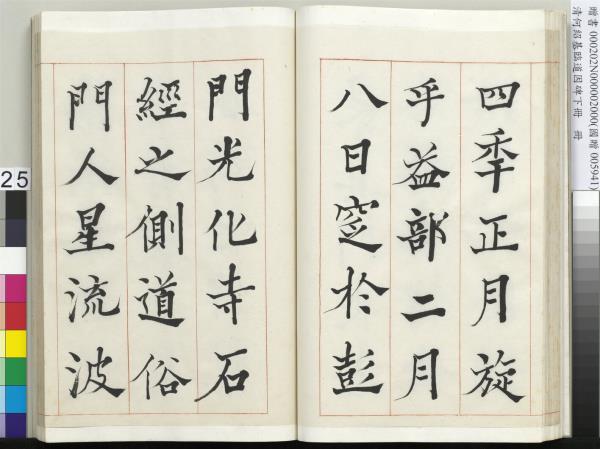 四年正月旋
乎益部二月
八日窆於彭
門光化寺石
經之側道俗
門人星流波
贈書 000202N000002000(國贈 005941)
清何紹基臨道因碑下冊 冊
25